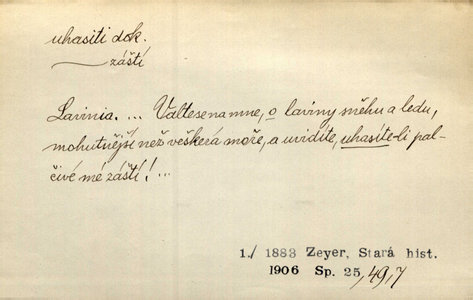 uhasiti dok.
záští
Lavinia. ... Valtesenamne, o laviny sněhu a ledu,
mohutnější než veškerá moře, a uvidíte, uhasíte-li pal-
čivé mé záští! ...
1./ 1883 Zeyer, Stará hist.
1906 Sp. 25, 49, 7